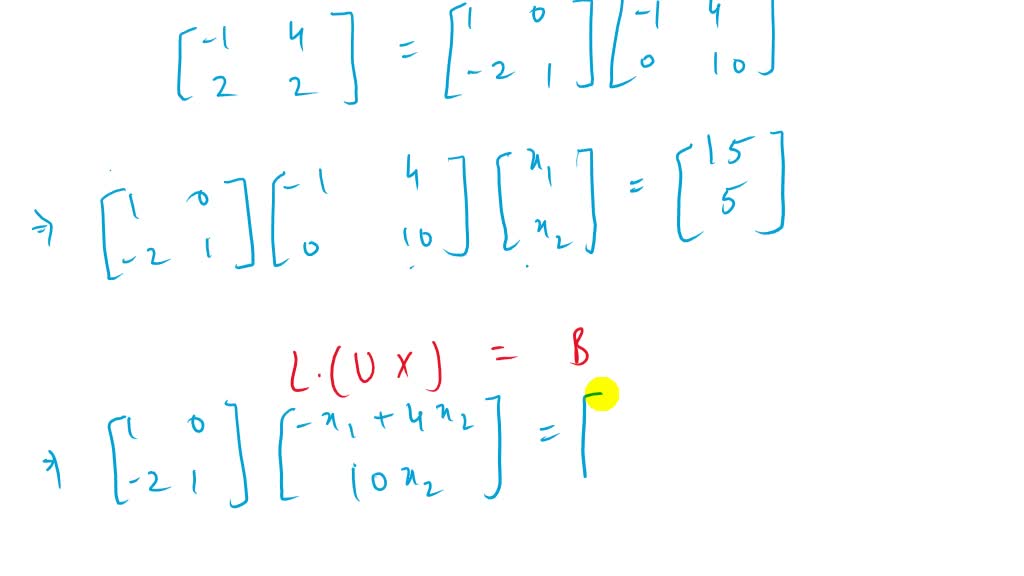 [-1 4; 2 2] = [1 0; -2 1] [-1 4; 0 10]
⇒ [1 0; -2 1] [-1 4; 0 10] [x₁; x₂] = [15; 5]
L.(UX) = B
⇒ [1 0; -2 1] [-x₁ + 4x₂; 10x₂] = [